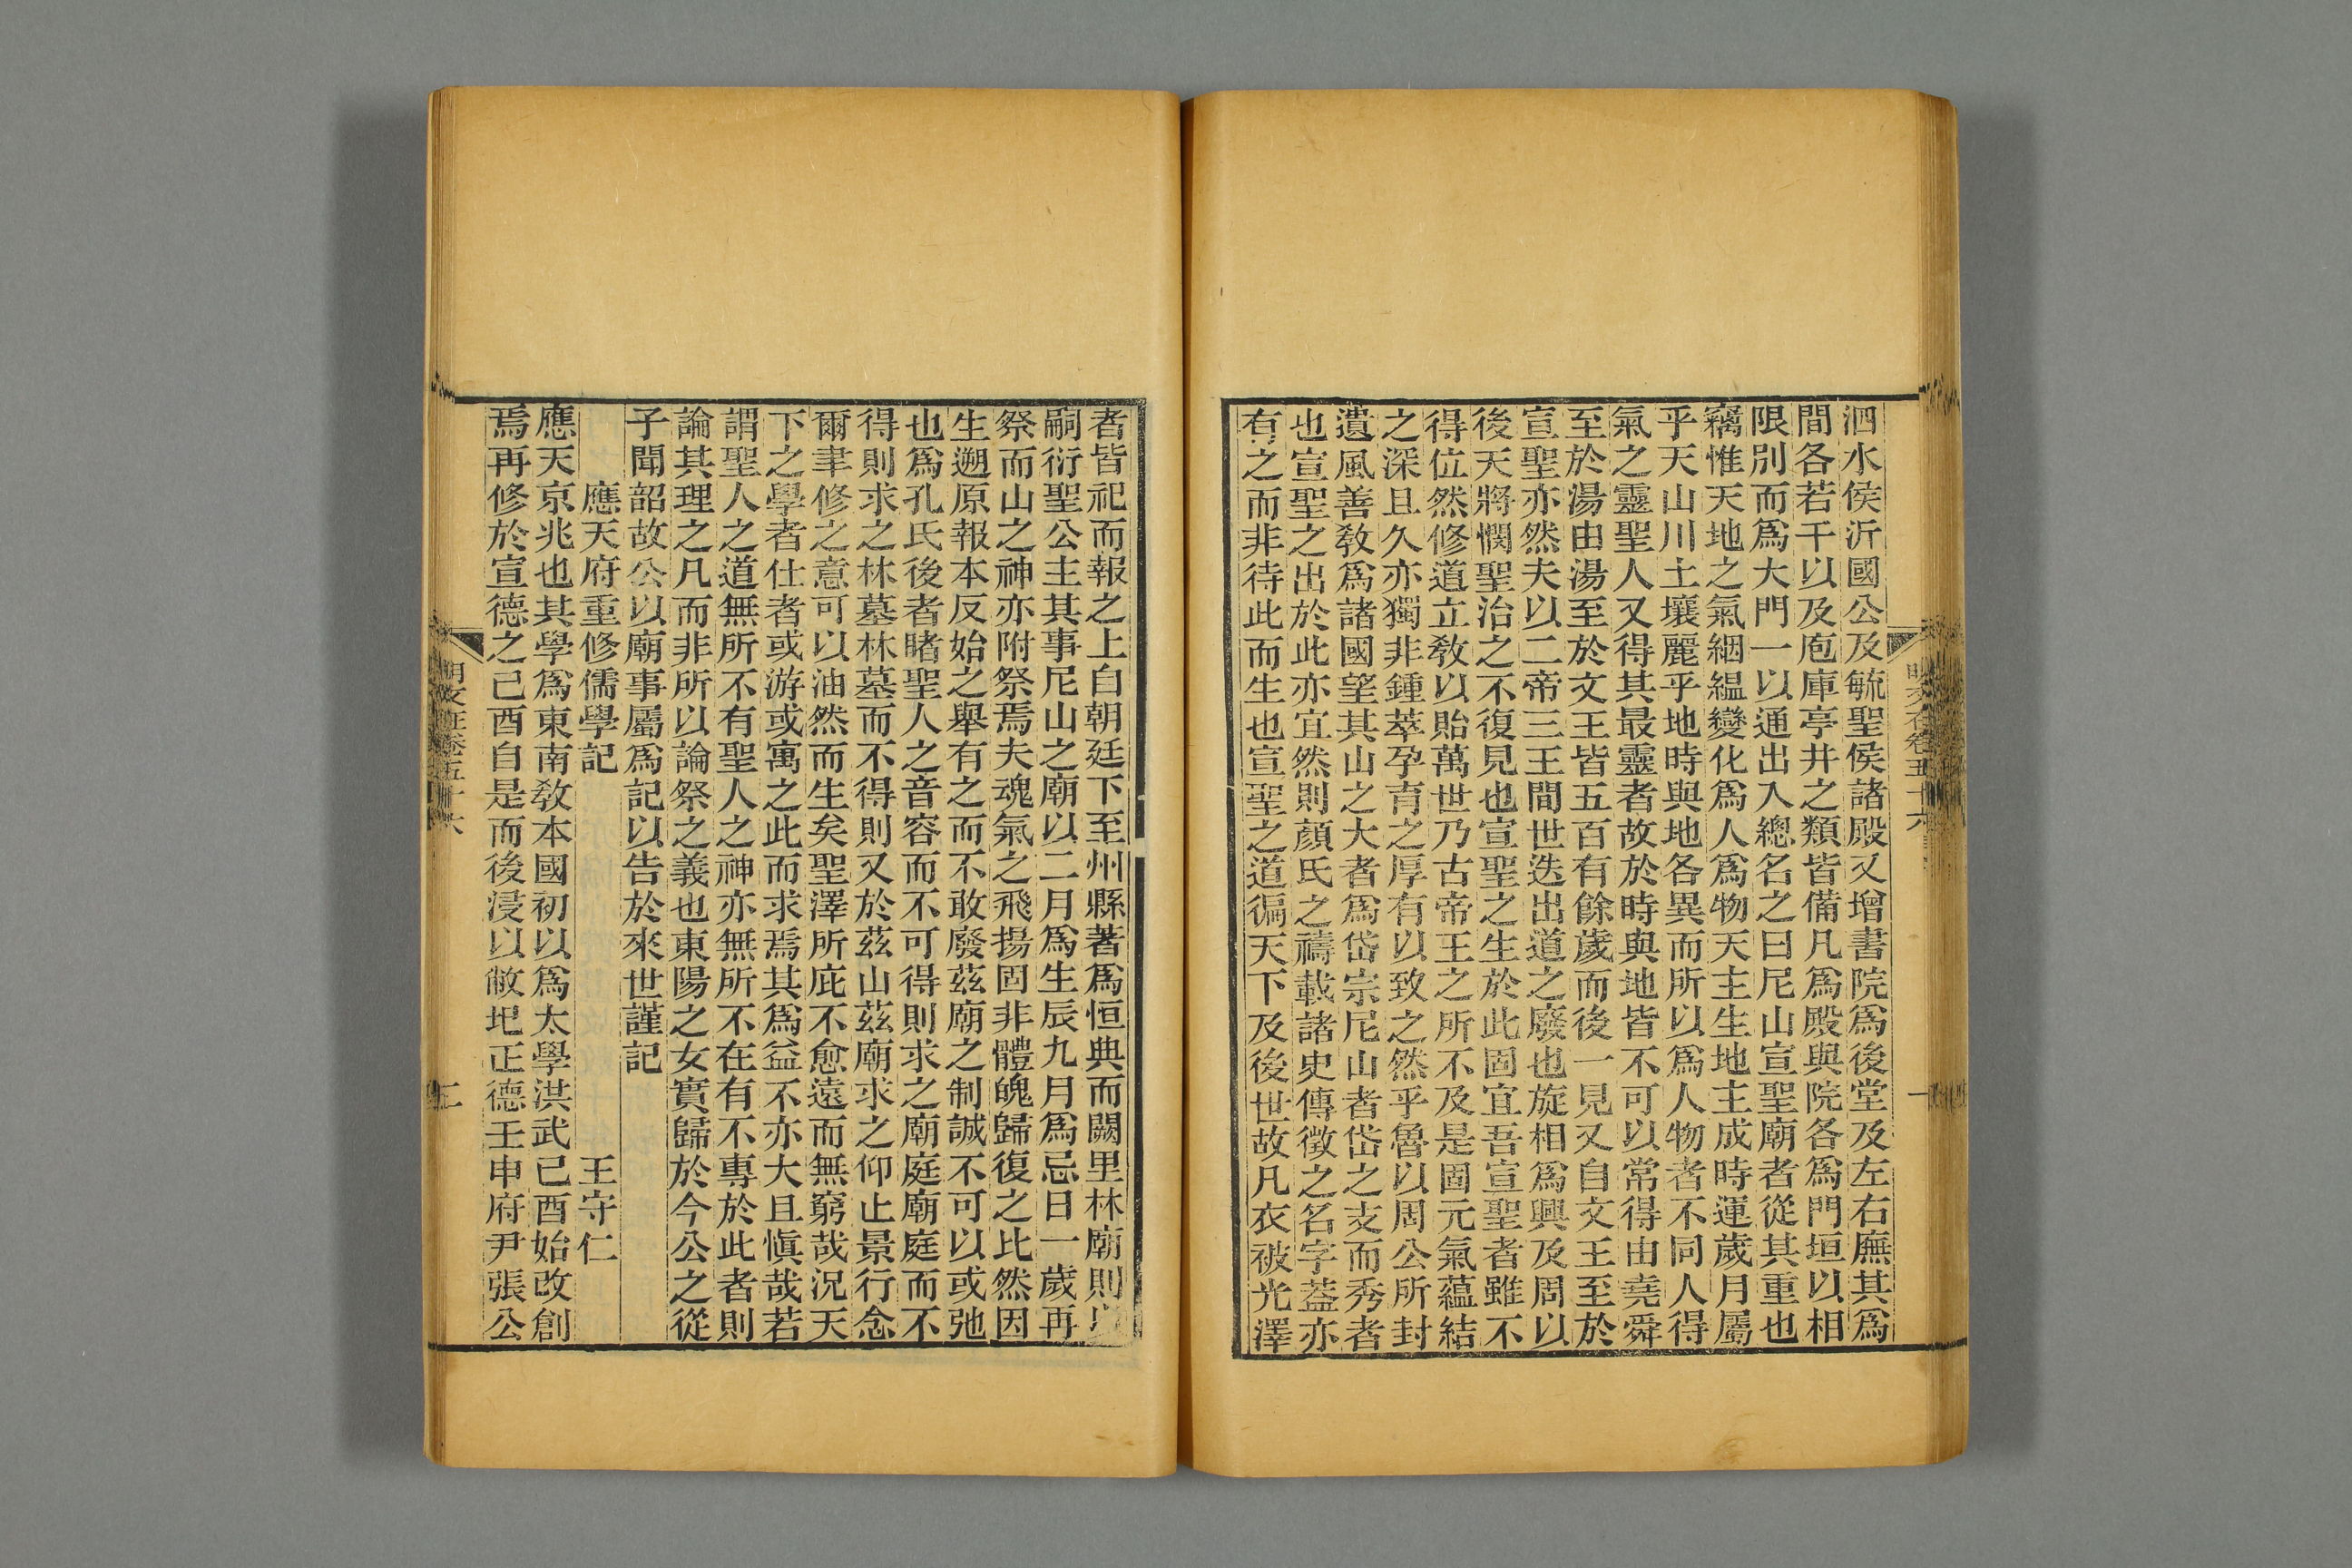 泗水侯沂國公及毓聖侯諸殿又增書院爲後堂及左右廡其爲
間各若干以及庖庫亭井之類皆備凡爲殿與院各爲門垣以相
限別而爲大門一以通出入總名之曰尼山宣聖廟者從其重也
竊惟天地之氣絪緼變化爲人爲物天主生地主成時運歲月屬
乎天山川土壤麗乎地時與地各異而所以爲人物者不同人得
氣之靈聖人又得其最靈者故於時與地皆不可以常得由堯舜
至於湯由湯至於文王皆五百有餘歲而後一見又自文王至於
宣聖亦然夫以二帝三王間世迭出道之廢也旋相爲興及周以
後天將憫聖治之不復見也宣聖之生於此固宜吾宣聖者雖不
得位然修道立敎以貽萬世乃古帝王之所不及是固元氣蘊結
之深且久亦獨非鍾萃孕育之厚有以致之然乎魯以周公所封
遺風善敎爲諸國望其山之大者爲岱宗尼山者岱之支而秀者
也宣聖之出於此亦宜然則顏氏之禱載諸史傳徵之名字葢亦
有之而非待此而生也宣聖之道徧天下及後世故凡衣被光澤
者皆祀而報之上自朝廷下至州縣著爲恒典而闕里林廟則以
嗣衍聖公主其事尼山之廟以二月爲生辰九月爲忌日一歲再
祭而山之神亦附祭焉夫魂氣之飛揚固非體魄歸復之比然因
生遡原報本反始之舉有之而不敢廢茲廟之制誠不可以或弛
也爲孔氏後者睹聖人之音容而不可得則求之廟庭廟庭而不
得則求之林墓林墓而不得則又於茲山茲廟求之仰止景行念
爾聿修之意可以油然而生矣聖澤所庇不愈遠而無窮哉況天
下之學者仕者或游或寓之此而求焉其爲益不亦大且愼哉若
謂聖人之道無所不有聖人之神亦無所不在有不專於此者則
論其理之凡而非所以論祭之義也東陽之女實歸於今公之從
子聞韶故公以廟事屬爲記以告於來世謹記
應天府重修儒學記 王守仁
應天京兆也其學爲東南敎本國初以爲太學洪武己酉始改創
焉再修於宣德之己酉自是而後浸以敝圯正德王申府尹張公
明文在卷五十六